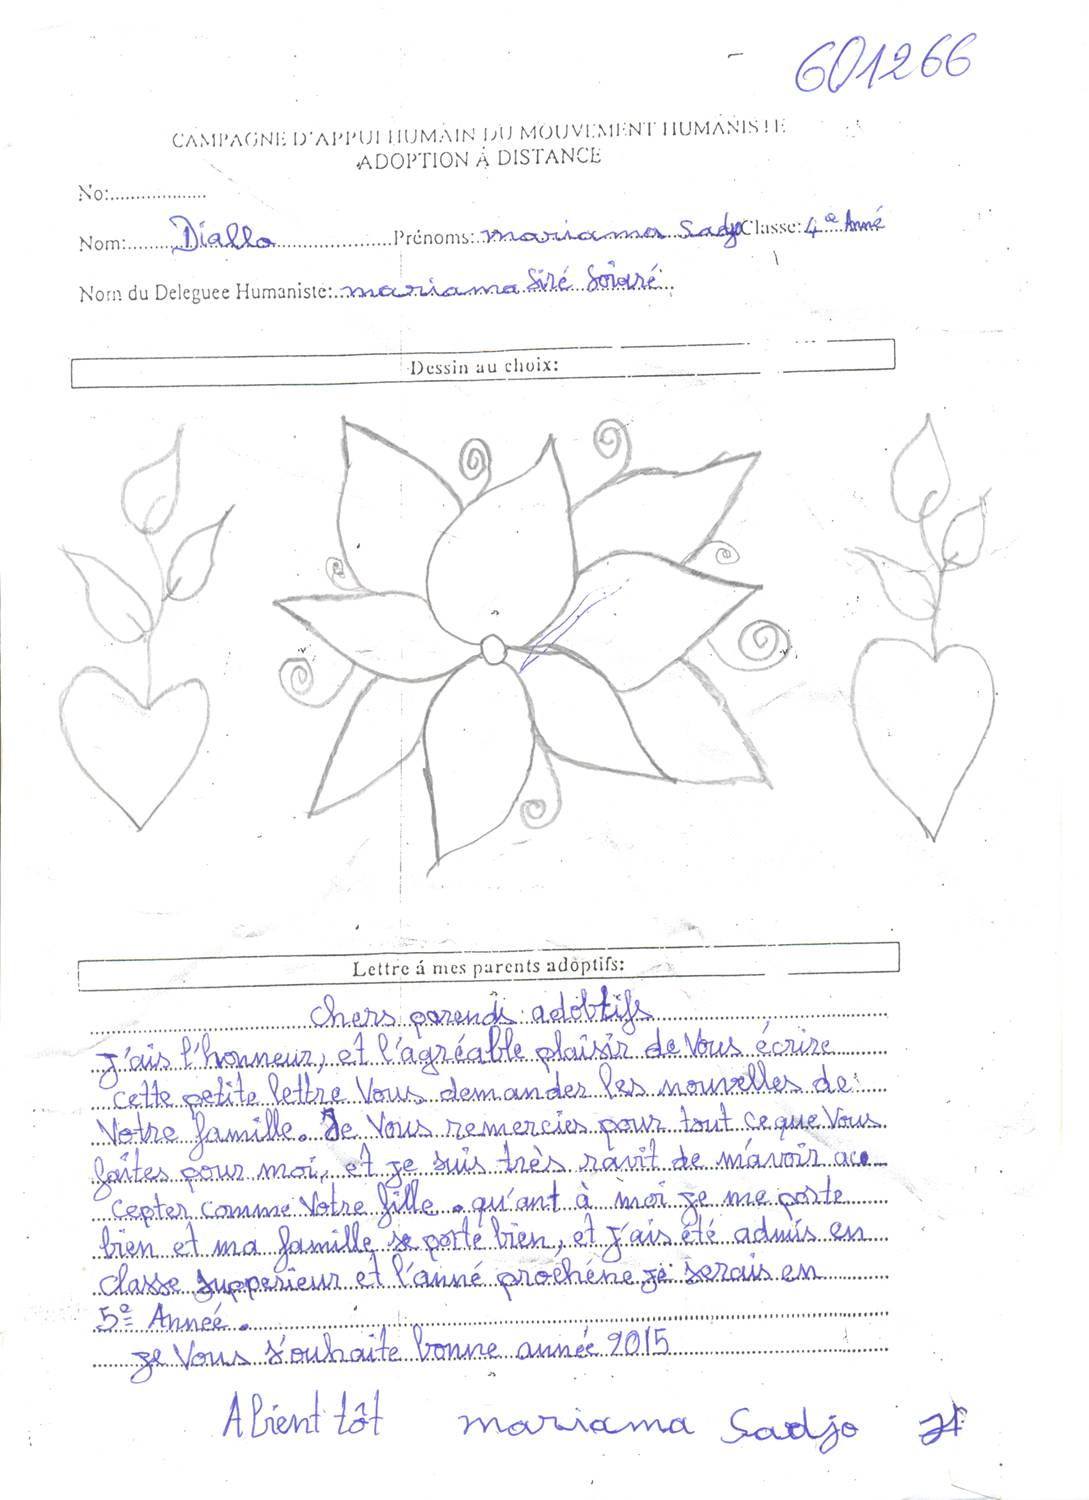 601266
CAMPAGNE D'APPUI HUMAIN DU MOUVEMENT HUMANISTE
ADOPTION Á DISTANCE
No:...................
Nom:.........Diallo.......................Prénoms:..mariama Sadjo Classe: 4e Anné
Nom du Deleguee Humaniste:..mariama Siré
Dessin au choix:
Lettre á mes parents adoptifs:
chers parends adobtifs
J'ais l'honneur, et l'agréable plaisir de Vous écrire
cette petite lettre Vous demander les nouvelles de
Votre famille. Je Vous remercies pour tout ce que Vous
faites pour moi, et je suis très ravit de m'avoir acc
cepter comme Votre fille. qu'ant à moi je me porte
bien et ma famille se porte bien, et j'ais été admis en
classe supperieur et l'anné prochéne je serais en
5e Année.
je Vous s'ouhaite bonne année 2015
A bient tôt mariama Sadjo